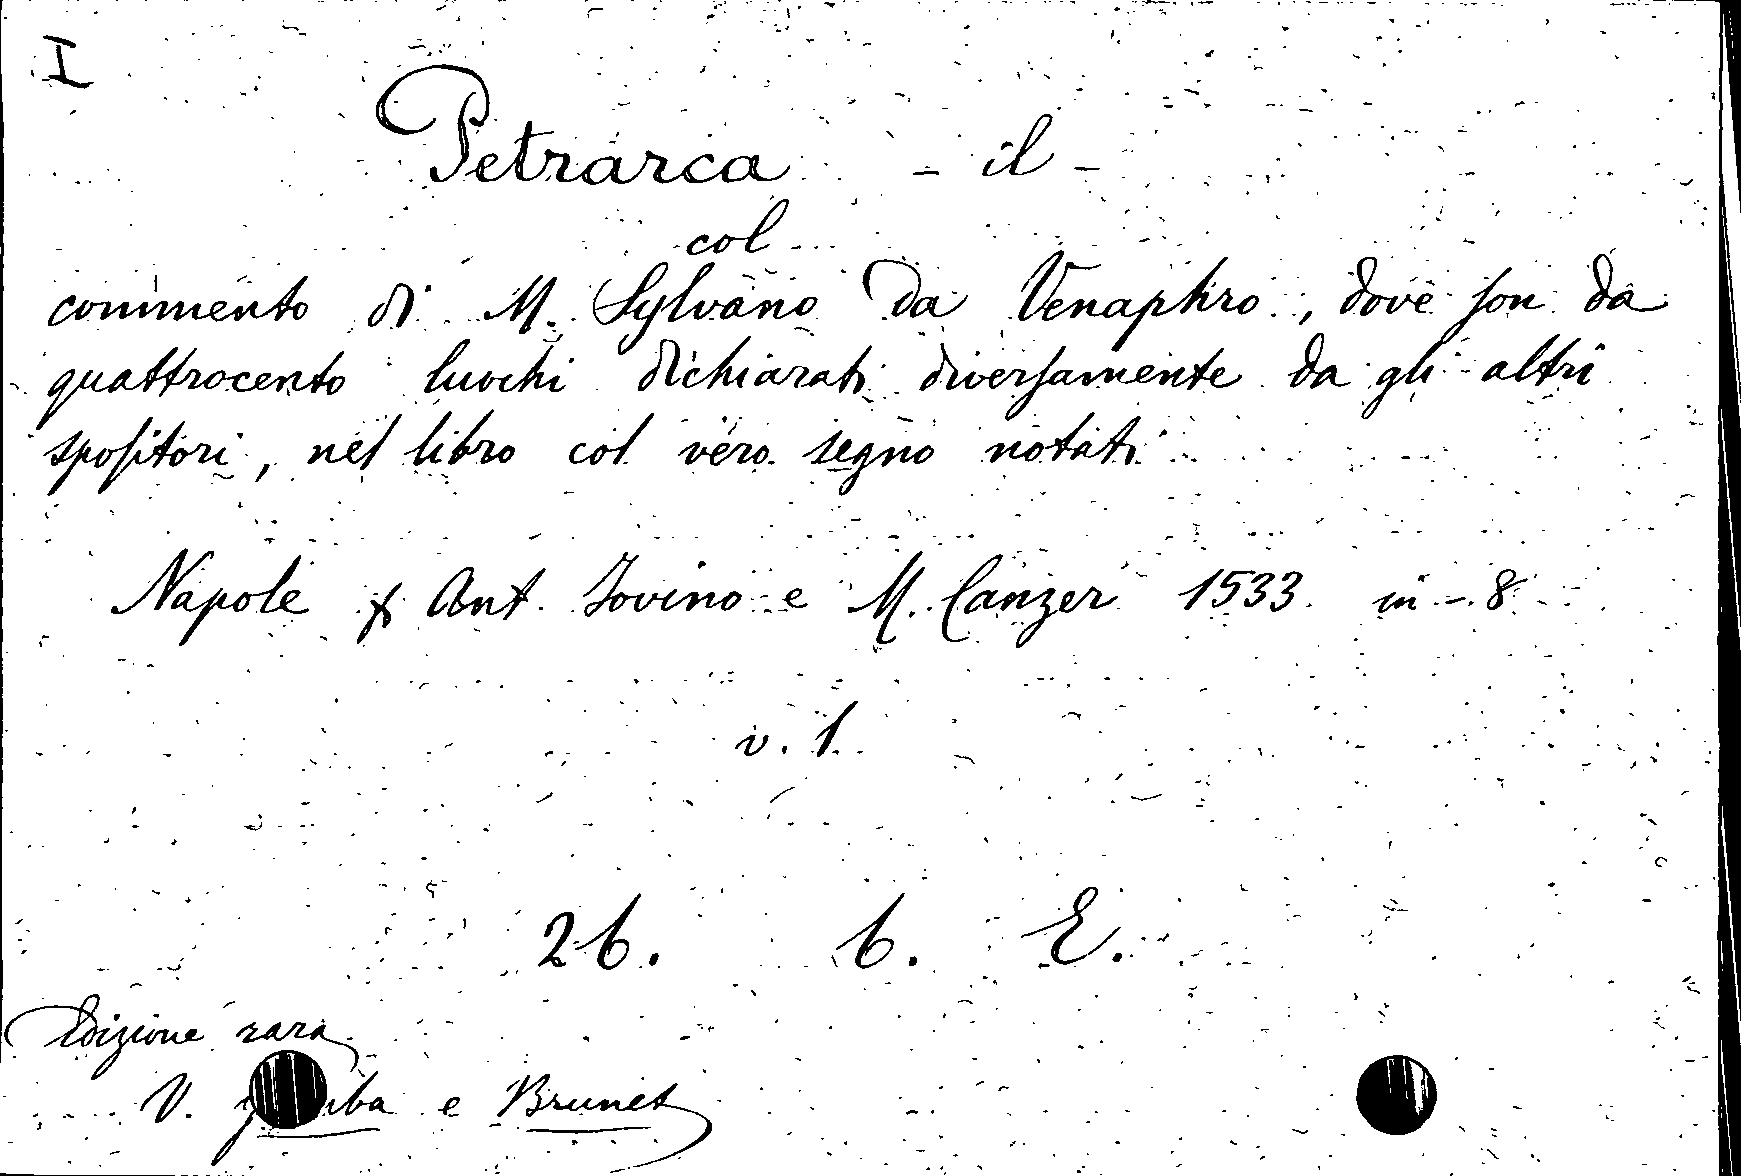 I
Petrarca - il -
col
commento di M. Sylvano da Venaphro, dove son da
quattrocento luochi dichiarati diversamente da gli altri
spositori, nel libro col vero segno notati
Napole p Ant. Iovino e M. Canzer 1533. in - 8
v. 1.
26. 6. E.
Edizione rara
V. e Brunet